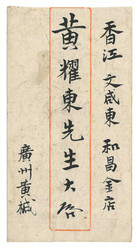 香江 文咸東 和昌金店
黃耀東先生大啓
廣州黃緘